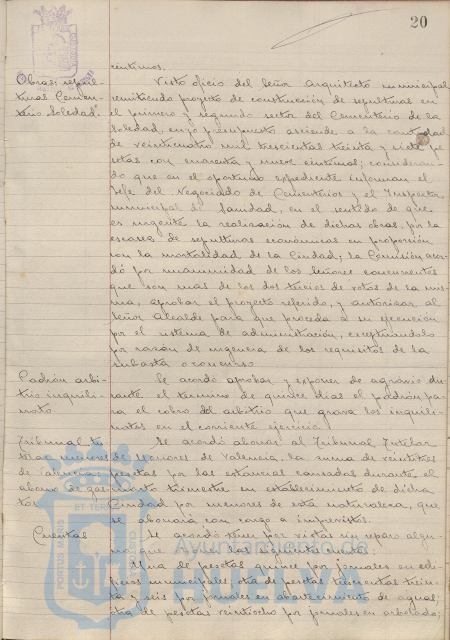 20
céntimos.
Obras: sepul-
turas Cemen-
terio Soledad.
Visto oficio del Señor Arquitecto municipal
remitiendo proyecto de construcción de sepulturas en
el primero y segundo sector del Cementerio de la
Soledad, cuyo presupuesto asciende a la cantidad
de veinticuatro mil trescientas treinta y siete pe
setas con cuarenta y nueve céntimos; consideran
do que en el oportuno expediente informan el
Jefe del Negociado de Cementerios y el Inspector
municipal de Sanidad, en el sentido de que
es urgente la realización de dichas obras, por la
escasez de sepulturas económicas en proporción
con la mortalidad de la Ciudad; la Comisión acor
dó por unanimidad de los Señores concurrentes
que son más de los dos tercios de votos de la mis
ma, aprobar el proyecto referido, y autorizar al
Señor Alcalde para que proceda a su ejecución
por el sistema de administración, exceptuándolo
por razón de urgencia de los requisitos de la
subasta o concurso.
Padrón arbi-
trio inquili-
nato
Se acordó aprobar y exponer de agravio du
rante el término de quince días el padrón pa
ra el cobro del arbitrio que grava los inquili
natos en el corriente ejercicio.
Tribunal tu
telar menores
de Valencia:
abono de gas-
tos
Se acordó abonar al Tribunal Tutelar
de Menores de Valencia, la suma de veintitrés
pesetas por las estancias causadas durante el
cuarto trimestre en establecimiento de dicha
Ciudad por menores de esta naturaleza, que
se abonará con cargo a imprevistos.
Cuentas
Se acordó tener por vistas sin reparo algu-
no que las siguientes cuentas:
Una de pesetas quince por jornales en edi-
ficios municipales; otra de pesetas trescientas trein-
ta y seis por jornales en abastecimiento de aguas;
otra de pesetas veintiocho por jornales en arbolado;
Ayuntamiento de